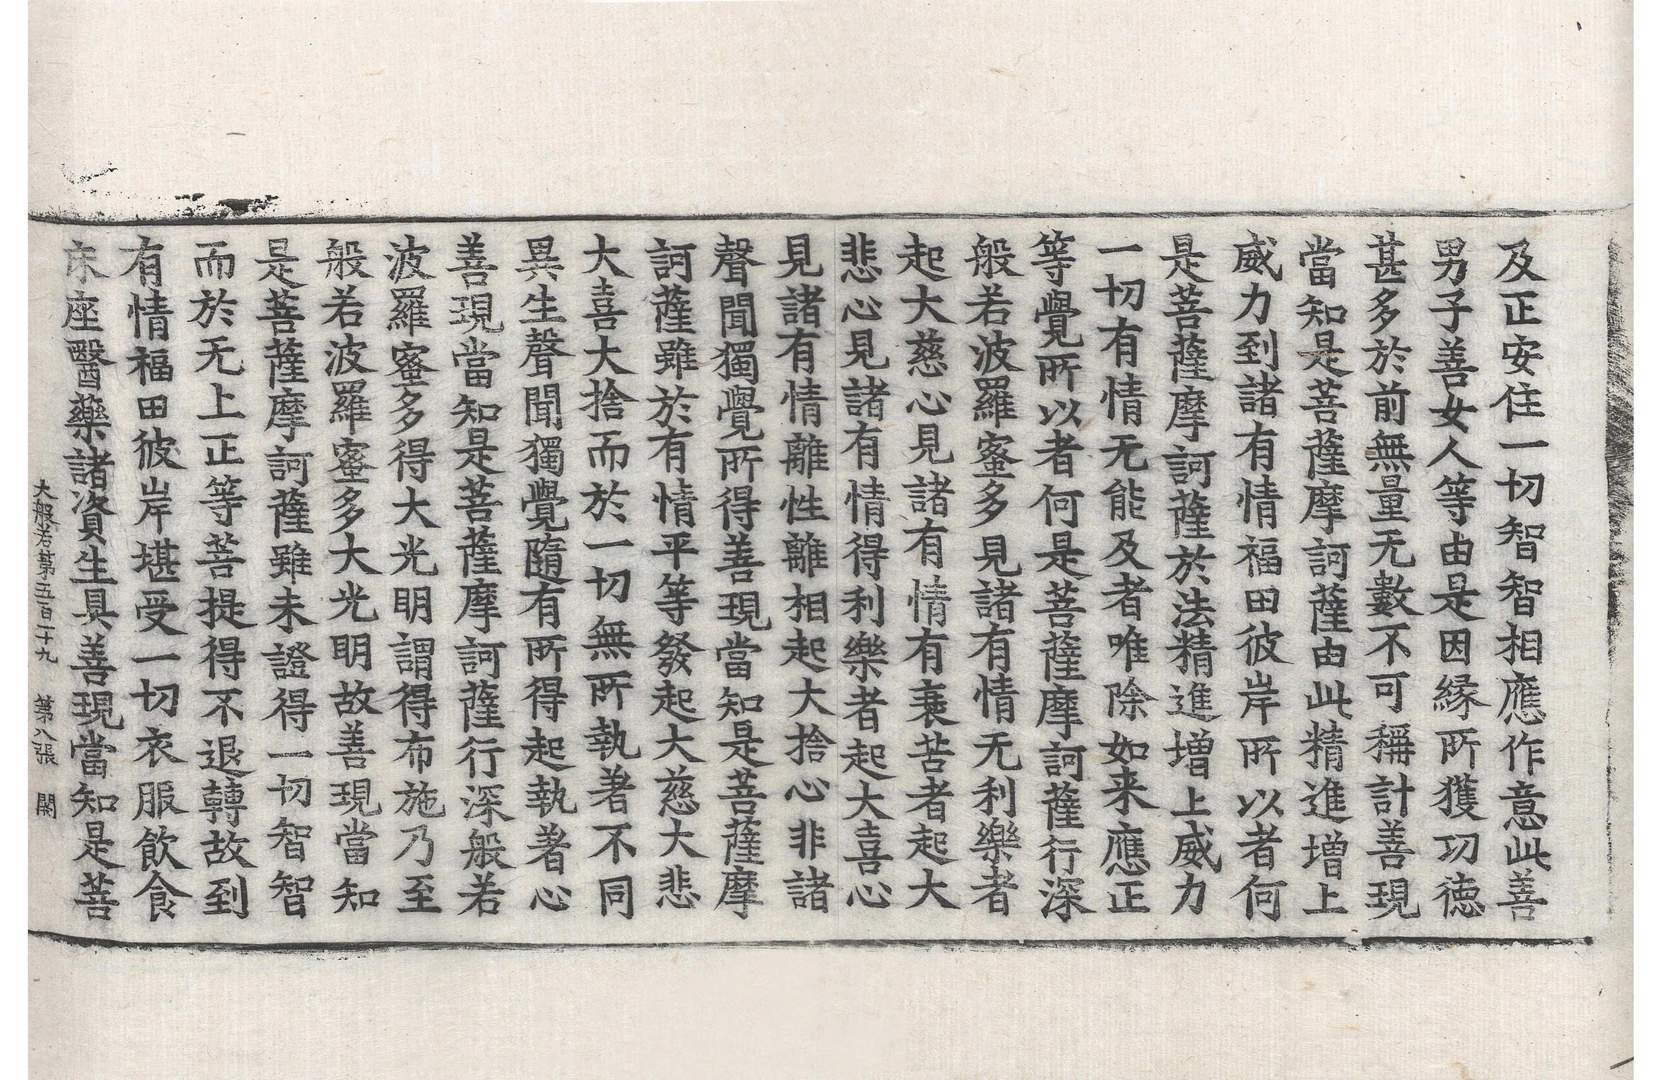 及正安住一切智智相應作意此善
男子善女人等由是因緣所獲功德
甚多於前無量无數不可稱計善現
當知是菩薩摩訶薩由此精進增上
威力到諸有情福田彼岸所以者何
是菩薩摩訶薩於法精進增上威力
一切有情无能及者唯除如来應正
等覺所以者何是菩薩摩訶薩行深
般若波羅蜜多見諸有情无利樂者
起大慈心見諸有情有衰苦者起大
悲心見諸有情得利樂者起大喜心
見諸有情離性離相起大捨心非諸
聲聞獨覺所得善現當知是菩薩摩
訶薩雖於有情平等發起大慈大悲
大喜大捨而於一切無所執著不同
異生聲聞獨覺隨有所得起執著心
善現當知是菩薩摩訶薩行深般若
波羅蜜多得大光明謂得布施乃至
般若波羅蜜多大光明故善現當知
是菩薩摩訶薩雖未證得一切智智
而於无上正等菩提得不退轉故到
有情福田彼岸堪受一切衣服飲食
床座醫藥諸資生具善現當知是菩
大般若苐五百二十九 第八張 闕